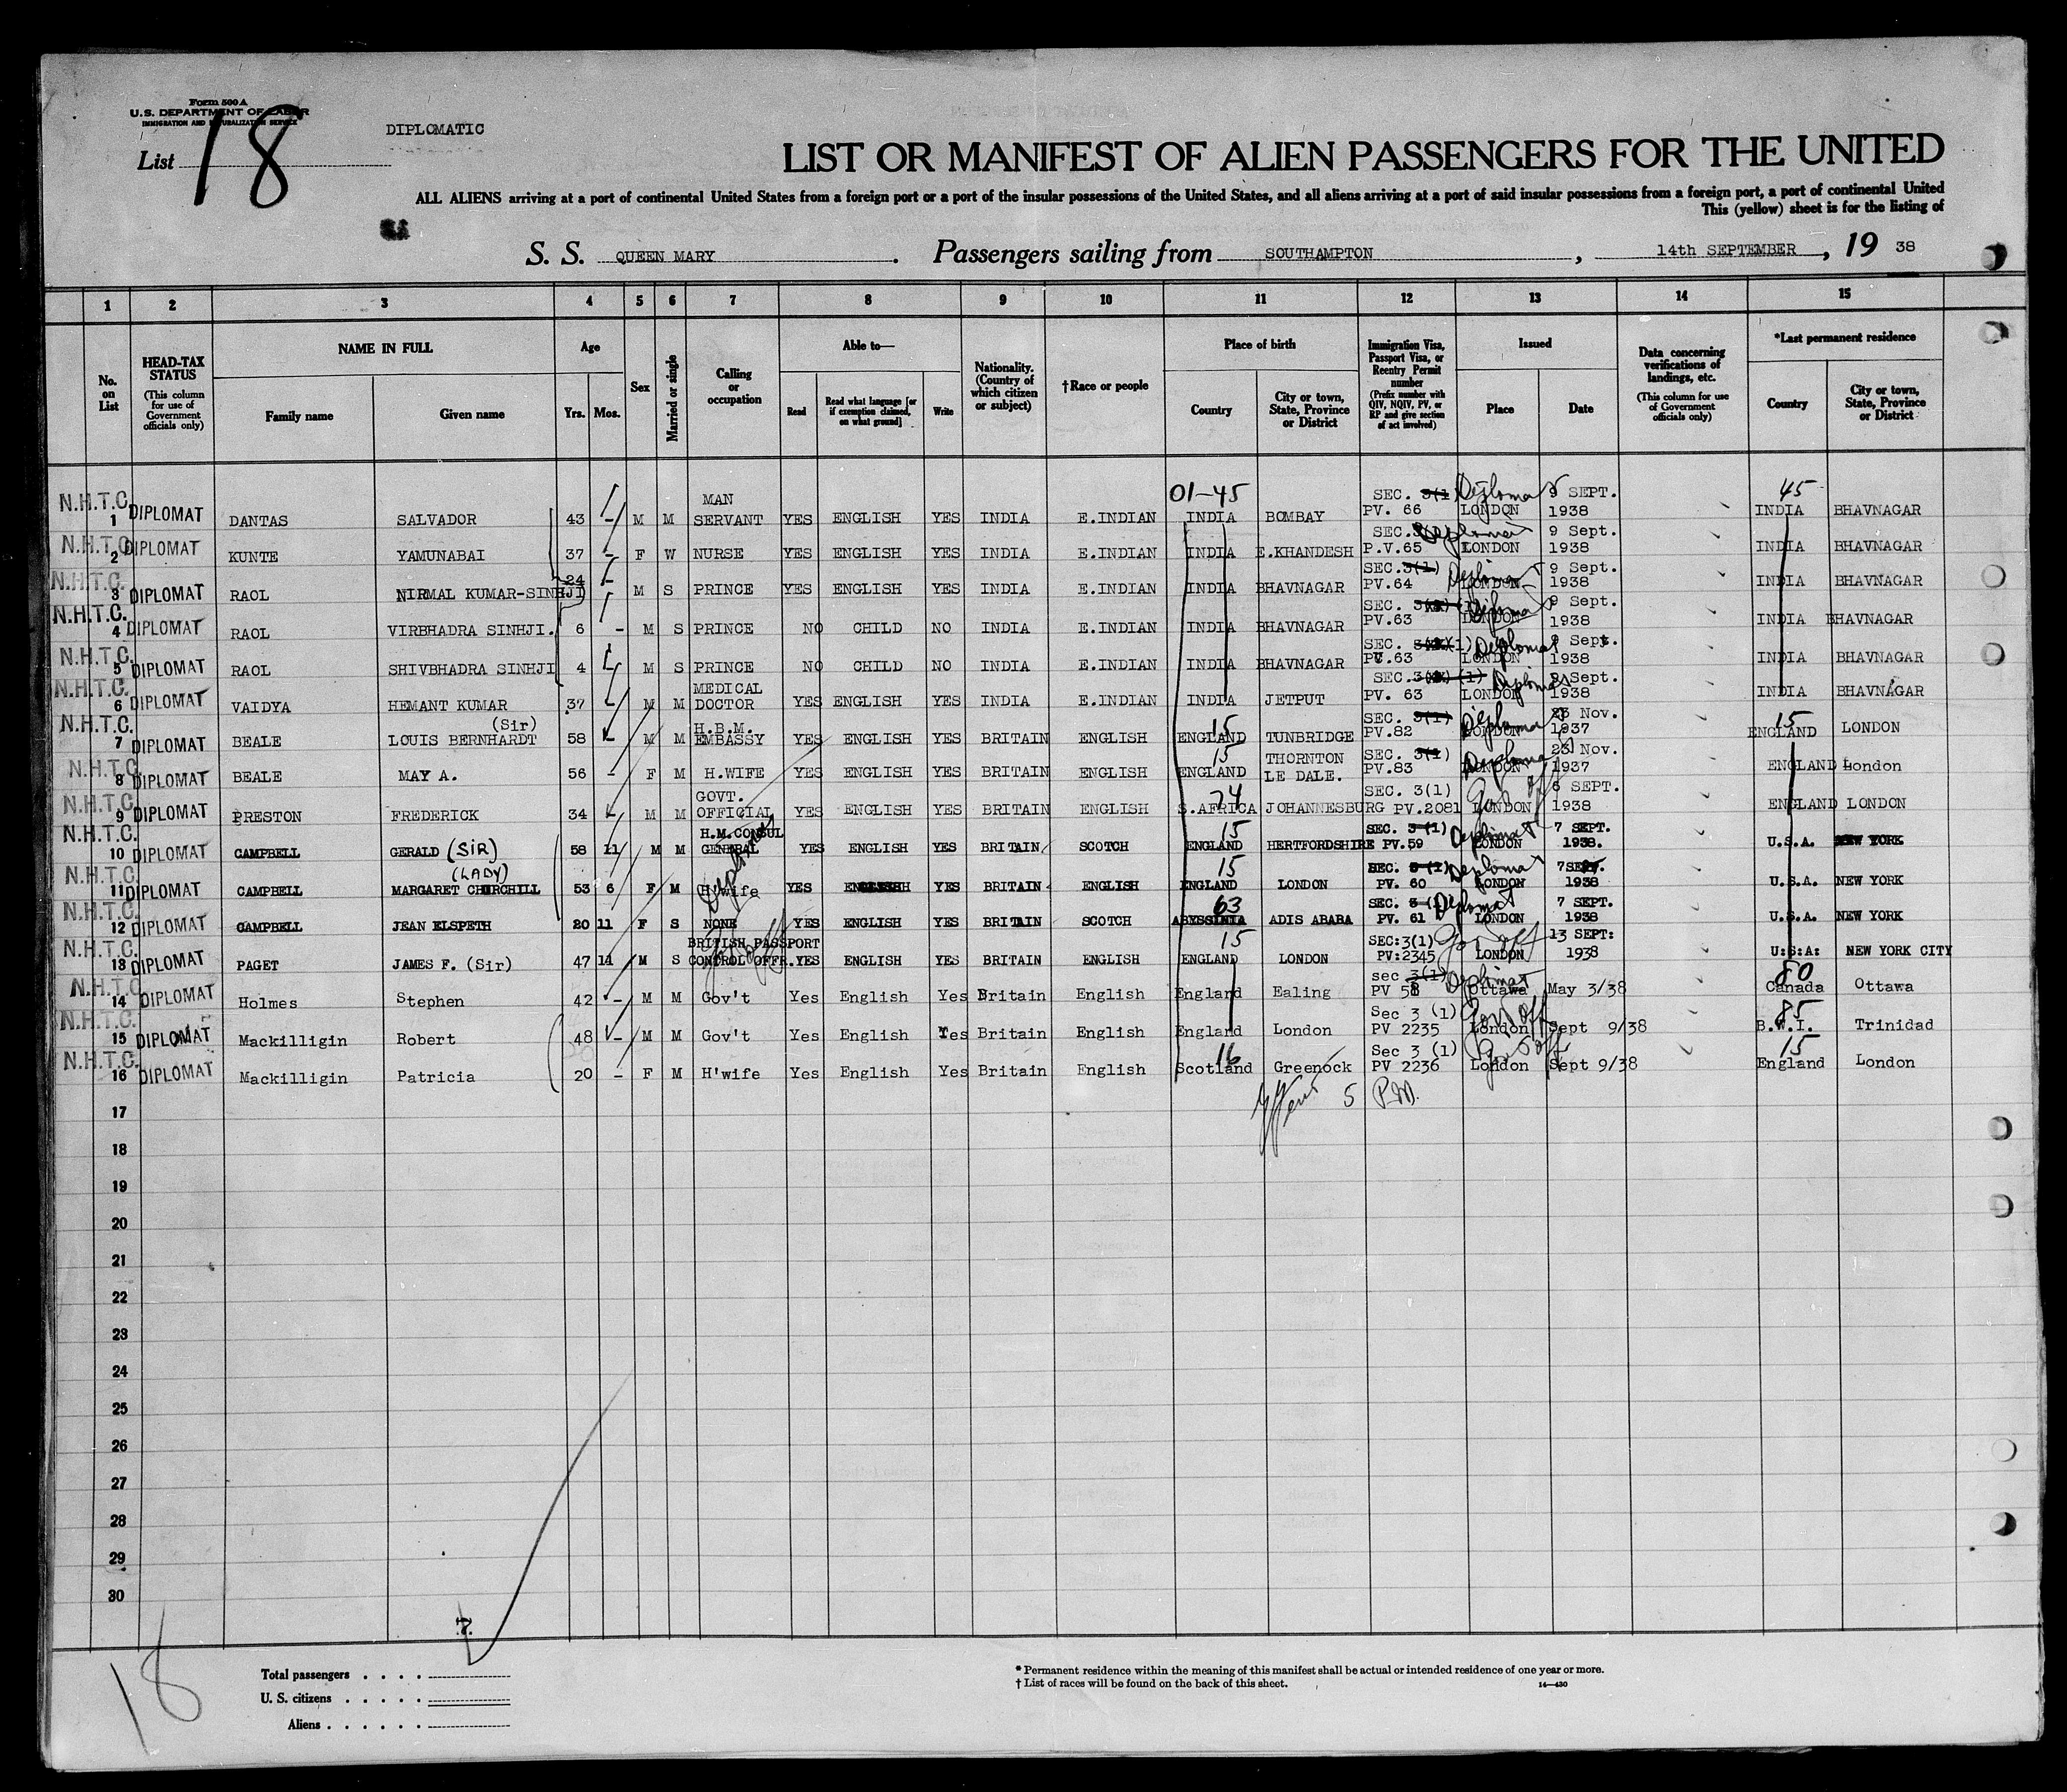 Form 500 A
U.S. DEPARTMENT OF LABOR
IMMIGRATION AND NATURALIZATION SERVICE
List 18
DIPLOMATIC
LIST OR MANIFEST OF ALIEN PASSENGERS FOR THE UNITED
ALL ALIENS arriving at a port of continental United States from a foreign port or a port of the insular possessions of the United States, and all aliens arriving at a port of said insular possessions from a foreign port, a port of continental United
This (yellow) sheet is for the listing of
S. S. QUEEN MARY. Passengers sailing from SOUTHAMPTON, 14th SEPTEMBER, 19 38
1 2 3 4 5 6 7 8 9 10 11 12 13 14 15
No. on List
HEAD-TAX STATUS (This column for use of Government officials only)
NAME IN FULL
Family name Given name
Age
Yrs. Mos.
Sex
Married or single
Calling or occupation
Able to—
Read Read what language [or if exemption claimed, on what ground] Write
Nationality. (Country of which citizen or subject)
†Race or people
Place of birth
Country City or town, State, Province or District
Immigration Visa, Passport Visa, or Reentry Permit number (Prefix number with QIV, NQIV, PV, or RP and give section of act involved)
Issued
Place Date
Data concerning verifications of landings, etc. (This column for use of Government officials only)
*Last permanent residence
Country City or town, State, Province or District
N.H.T.C. 1 DIPLOMAT DANTAS SALVADOR 43 - M M MAN SERVANT YES ENGLISH YES INDIA E.INDIAN 01-45 INDIA BOMBAY SEC. 3(1) Diplomat PV. 66 LONDON 9 SEPT. 1938 45 INDIA BHAVNAGAR
N.H.T.C. 2 DIPLOMAT KUNTE YAMUNABAI 37 - F W NURSE YES ENGLISH YES INDIA E.INDIAN INDIA E.KHANDESH SEC. Diplomat P.V.65 LONDON 9 Sept. 1938 INDIA BHAVNAGAR
N.H.T.C. 3 DIPLOMAT RAOL NIRMAL KUMAR-SINHJI 24 - M S PRINCE YES ENGLISH YES INDIA E.INDIAN INDIA BHAVNAGAR SEC.3(1) Diplomat PV.64 LONDON 9 Sept. 1938 INDIA BHAVNAGAR
N.H.T.C. 4 DIPLOMAT RAOL VIRBHADRA SINHJI. 6 - M S PRINCE NO CHILD NO INDIA E.INDIAN INDIA BHAVNAGAR SEC. (1) Diplomat PV.63 LONDON 9 Sept. 1938 INDIA BHAVNAGAR
N.H.T.C. 5 DIPLOMAT RAOL SHIVBHADRA SINHJI 4 M S PRINCE NO CHILD NO INDIA E.INDIAN INDIA BHAVNAGAR SEC. (1) Diplomat PV.63 LONDON 9 Sept. 1938 INDIA BHAVNAGAR
N.H.T.C. 6 DIPLOMAT VAIDYA HEMANT KUMAR 37 - M M MEDICAL DOCTOR YES ENGLISH YES INDIA E.INDIAN INDIA JETPUT SEC. (1) Diplomat PV. 63 LONDON 9 Sept. 1938 INDIA BHAVNAGAR
N.H.T.C. 7 DIPLOMAT BEALE LOUIS BERNHARDT (Sir) 58 - M M H.B.M. EMBASSY YES ENGLISH YES BRITAIN ENGLISH 15 ENGLAND TUNBRIDGE SEC. 3(1) Diplomat PV.82 LONDON 23 Nov. 1937 15 ENGLAND LONDON
N.H.T.C. 8 DIPLOMAT BEALE MAY A. 56 - F M H.WIFE YES ENGLISH YES BRITAIN ENGLISH 15 ENGLAND THORNTON LE DALE. SEC. 3(1) Diplomat PV.83 LONDON 23 Nov. 1937 ENGLAND London
N.H.T.C. 9 DIPLOMAT PRESTON FREDERICK 34 - M M GOVT. OFFICIAL YES ENGLISH YES BRITAIN ENGLISH 74 S.AFRICA JOHANNESBURG SEC. 3(1) PV.2081 LONDON Gov Off 6 SEPT. 1938 ENGLAND LONDON
N.H.T.C. 10 DIPLOMAT CAMPBELL GERALD (SIR) 58 11 M M H.M.CONSUL GENERAL Diplomat YES ENGLISH YES BRITAIN SCOTCH 15 ENGLAND HERTFORDSHIRE SEC. 3(1) Diplomat PV.59 LONDON 7 SEPT. 1938. U.S.A. NEW YORK
N.H.T.C. 11 DIPLOMAT CAMPBELL MARGARET CHURCHILL (LADY) 53 6 F M H'wife YES ENGLISH YES BRITAIN ENGLISH 15 ENGLAND LONDON SEC. 3(1) Diplomat PV. 60 LONDON 7SEPT. 1938 U.S.A. NEW YORK
N.H.T.C. 12 DIPLOMAT CAMPBELL JEAN ELSPETH 20 11 F S NONE YES ENGLISH YES BRITAIN SCOTCH 63 ABYSSINIA ADIS ABABA SEC. 3(1) Diplomat PV. 61 LONDON 7 SEPT. 1938 U.S.A. NEW YORK
N.H.T.C. 13 DIPLOMAT PAGET JAMES F. (Sir) 47 11 M S BRITISH PASSPORT CONTROL OFFR. Gov Off YES ENGLISH YES BRITAIN ENGLISH 15 ENGLAND LONDON SEC:3(1) Gov Off PV:2345 LONDON 13 SEPT: 1938 U:S:A: NEW YORK CITY
N.H.T.C. 14 DIPLOMAT Holmes Stephen 42 - M M Gov't Yes English Yes Britain English England Ealing sec 3(1) Diplomat PV 58 Ottawa May 3/38 80 Canada Ottawa
N.H.T.C. 15 DIPLOMAT Mackilligin Robert 48 - M M Gov't Yes English Yes Britain English England London Sec 3 (1) Gov Off PV 2235 London Sept 9/38 85 B.W.I. Trinidad
N.H.T.C. 16 DIPLOMAT Mackilligin Patricia 20 - F M H'wife Yes English Yes Britain English 16 Scotland Greenock Sec 3 (1) Gov Off PV 2236 London Sept 9/38 15 England London
17 5 P.M.
18
19
20
21
22
23
24
25
26
27
28
29
30
18
Total passengers . . . .
U. S. citizens . . . . .
Aliens . . . . . .
* Permanent residence within the meaning of this manifest shall be actual or intended residence of one year or more.
† List of races will be found on the back of this sheet. 14—430